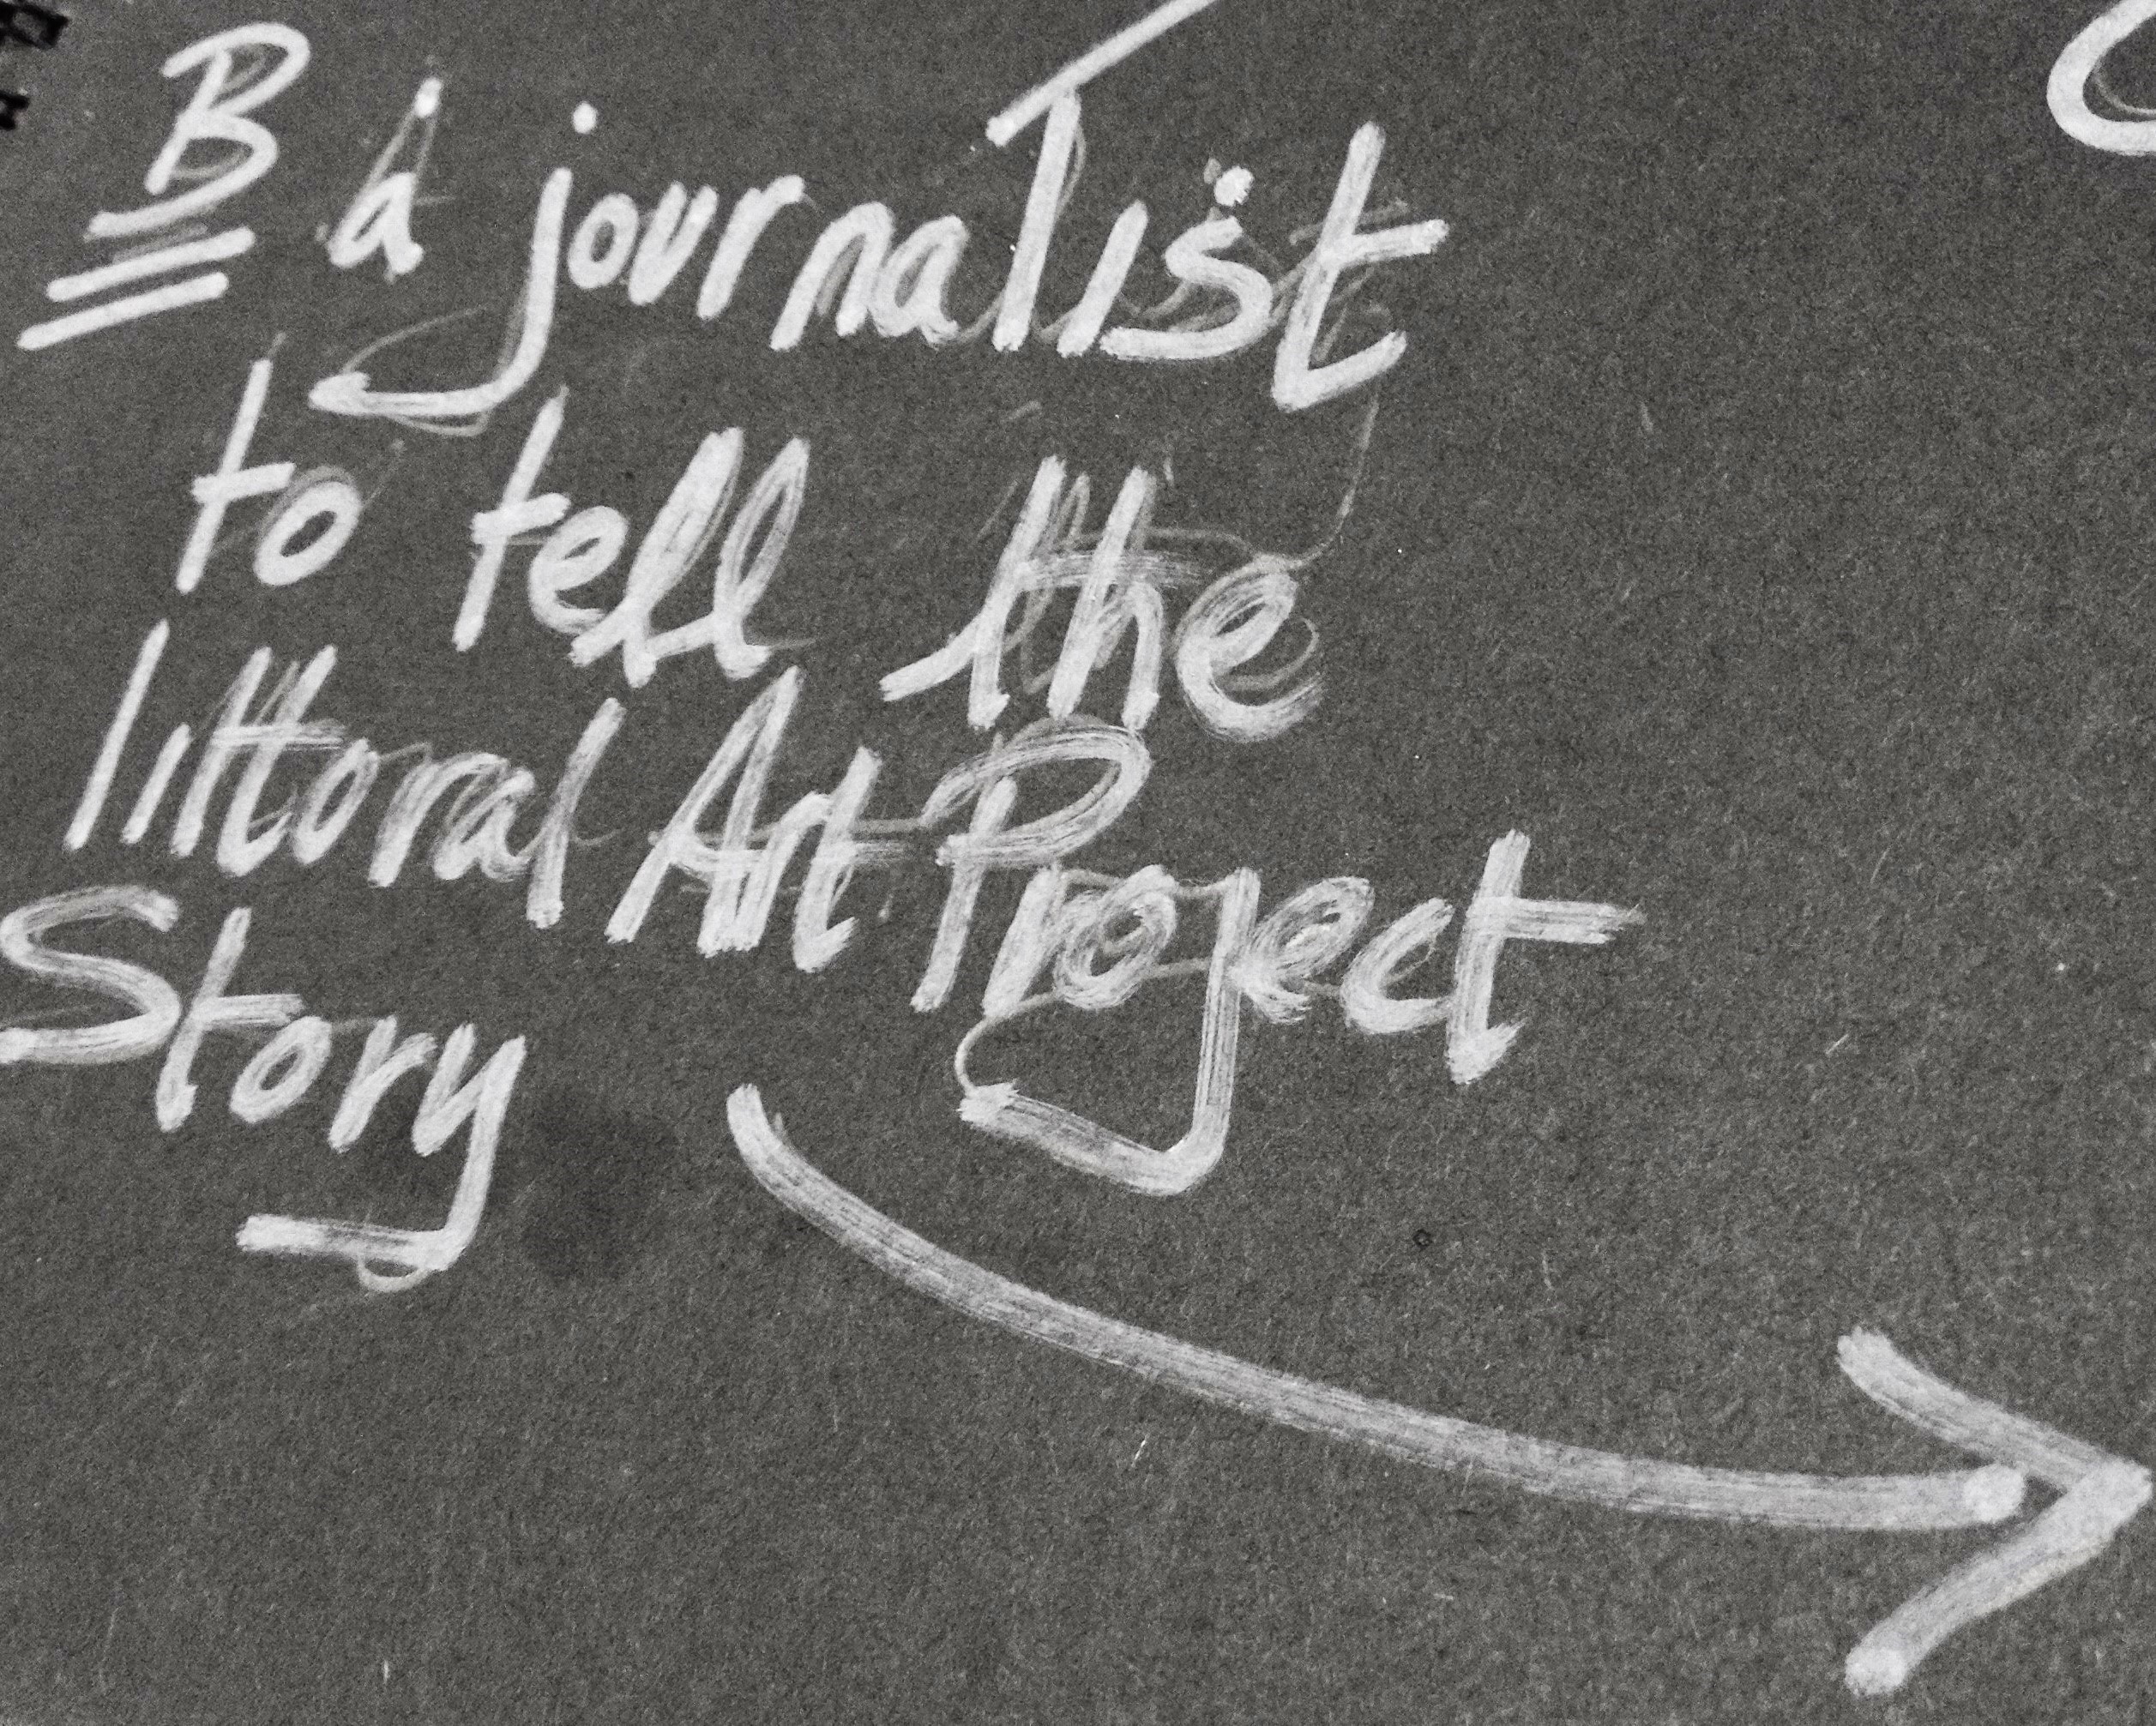 B a journalist
to tell the
littoral Art Project
Story